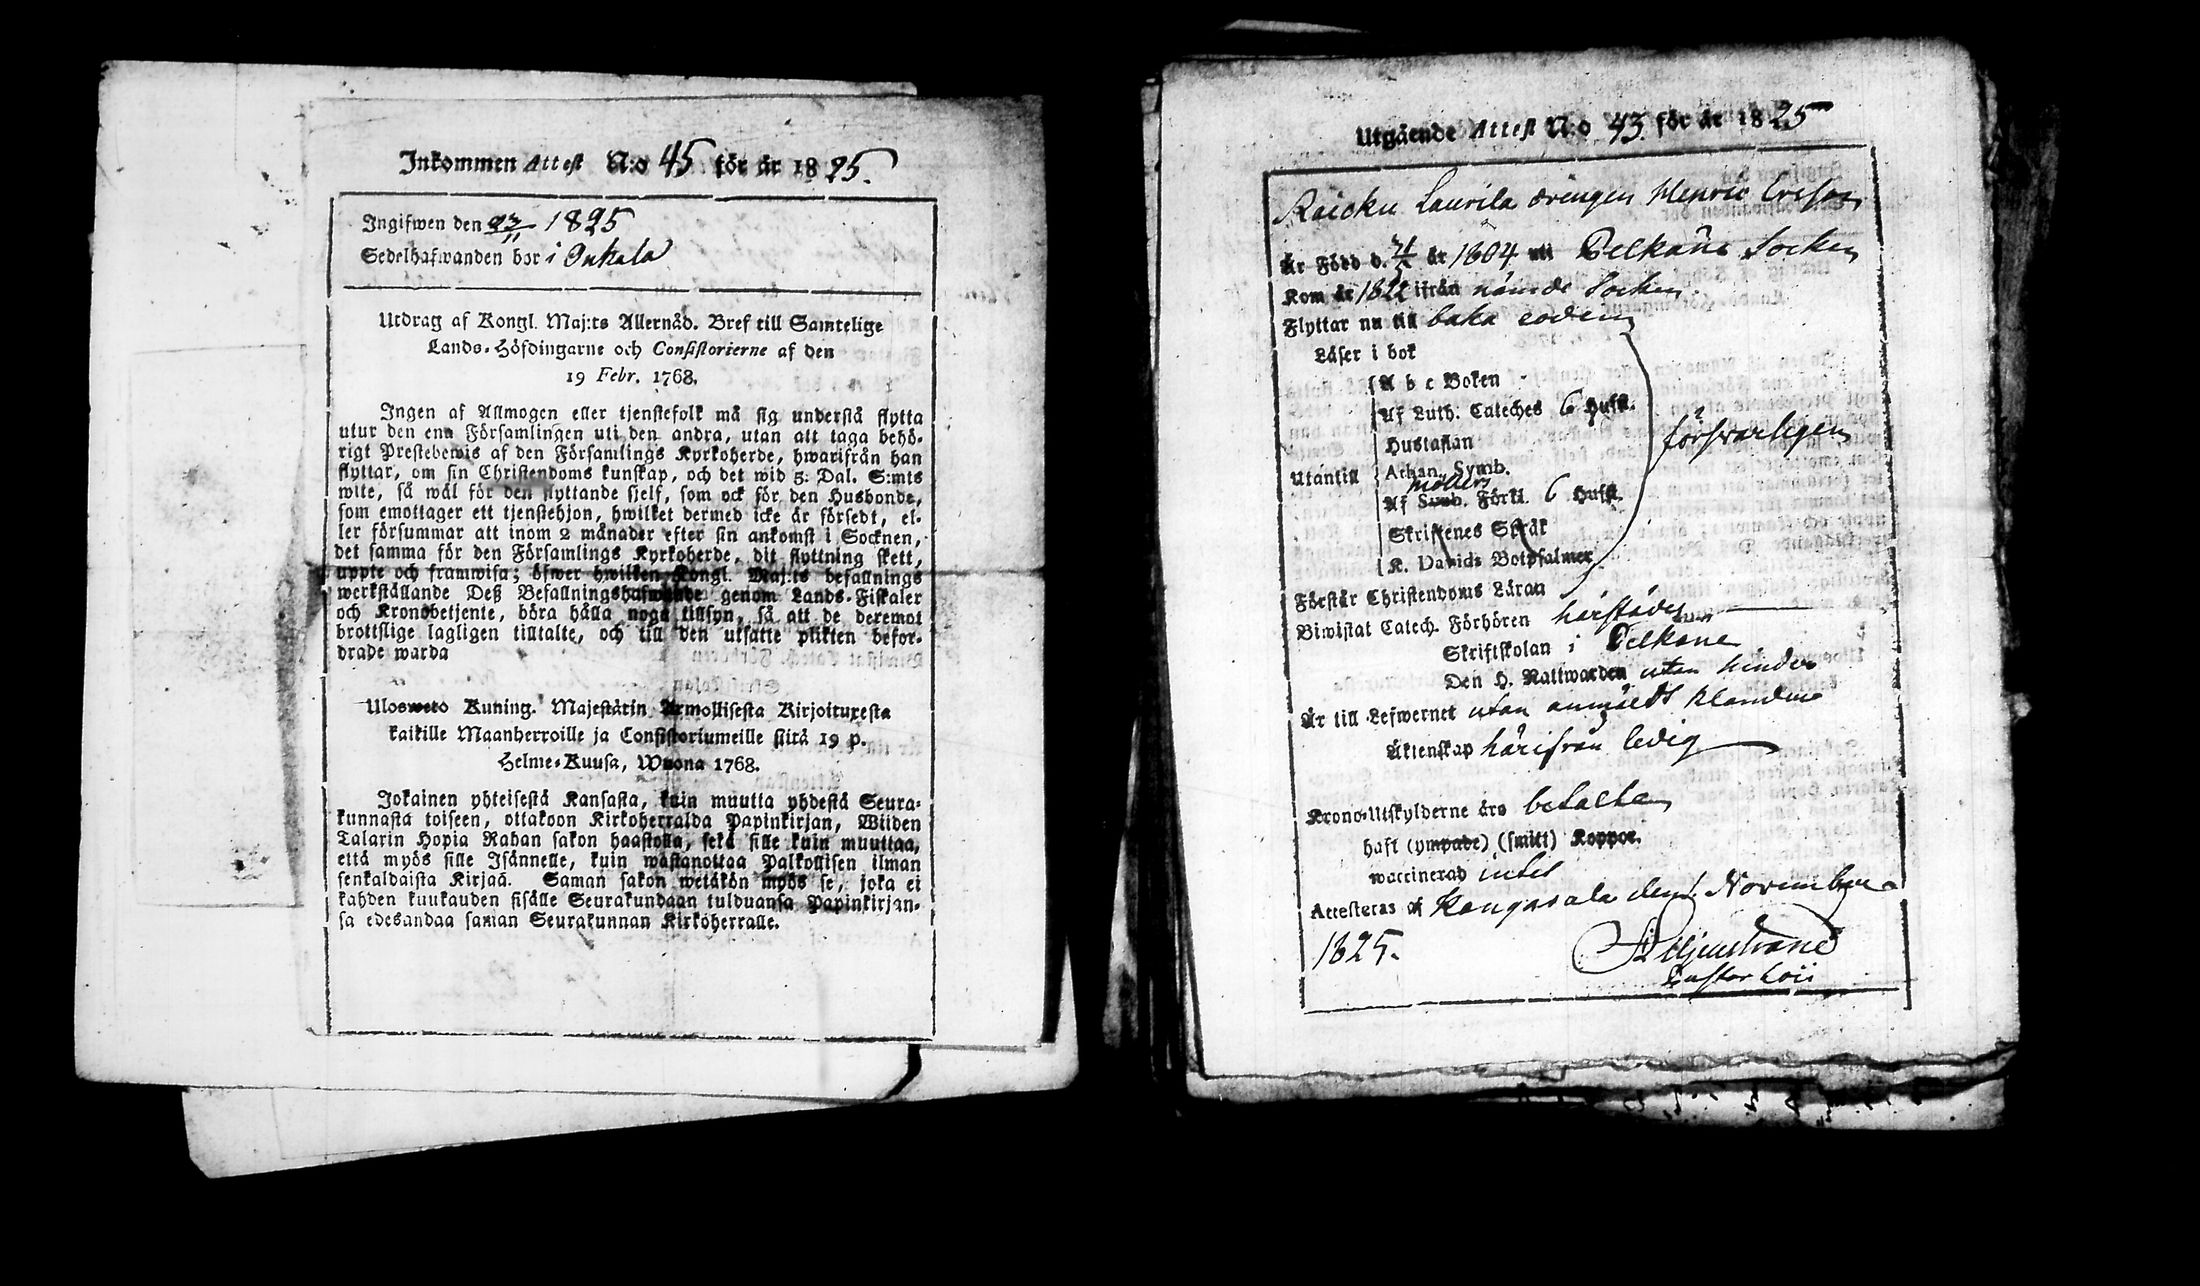 Inkommen Attest N:o 45 för år 1825.
Ingifwen den 23/11 1825
Sedelhafwanden bor i Onkala
Utdrag af Kongl. Maj:ts Allernåd. Bref till Samtelige
Lands-Höfdingarne och Consistorierne af den
19 Febr. 1768.
Ingen af Allmogen eller tjenstefolk må sig understå flytta
utur den ena Församlingen uti den andra, utan att taga behö-
rigt Prestebewis af den Församlings Kyrkoherde, hwarifrån han
flyttar, om sin Christendoms kunskap, och det wid 5: Dal. S:mts
wite, så wäl för den flyttande sjelf, som ock för den Husbonde,
som emottager ett tjenstehjon, hwilket dermed icke är försedt, el-
ler försummar att inom 2 månader efter sin ankomst i Socknen,
det samma för den Församlings Kyrkoherde, dit flyttning skett,
uppte och framwisa; öfwer hwilken Kongl. Maj:ts befallnings
werkställande Deß Befallningshafwande genom Lands-Fiskaler
och Kronobetjente, böra hålla noga tillsyn, så att de deremot
brottslige lagligen tilltalte, och till den utsatte plikten befor-
drade warda
Uloswető Kuning. Majestätin Armollisesta Kirjoituxesta
kaikille Maanherroille ja Consistoriumeille siitä 19 p.
Helme-Kuusa, Wuona 1768.
Jokainen yhteisestä Kansasta, kuin muutta yhdestä Seura-
kunnasta toiseen, ottakoon Kirkoherralda Papinkirjan, Wiiden
Talarin Hopia Rahan sakon haastolla, sekä sille kuin muuttaa,
että myös sille Isännelle, kuin wastanottaa Palkollisen ilman
senkaldaista Kirjaa. Saman sakon wetäkön myös se, joka ei
kahden kuukauden sisälle Seurakundaan tulduansa Papinkirjan-
sa edesandaa saman Seurakunnan Kirkoherralle.
Utgående Attest N:o 43 för år 1825
Raicku Laurila drengen Henric Ersson
Är Född d. år 1804 uti Pelkäne Socken
Kom år 1822 ifrån nämde Socken
Flyttar nu till baka
Läser i bok
A b c Boken
Af Luth. Cateches 6 Hufst.
Hustaflan
försvarligen
Utantill
Athan. Symb.
möllers
Af Symb. Förkl. 6 Hufst.
Skriftenes Språk
K. Davids Botpsalmer
Förstår Christendoms Läran
Biwistat Catech. Förhören härstädes
Skriftskolan i Pelkäne
Den H. Nattwarden utan hinder
Är till Lefwernet utan anmäldt klander
Äktenskap härifrån ledig
Krono-Utskylderne äro betalte
haft (ympade) (smitt) Koppor.
waccinerad intet
Attesteras af Kangasala den 1. November
1825.